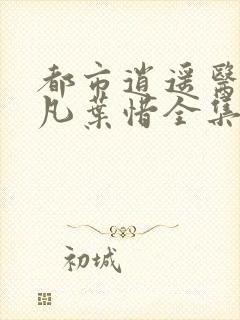 都市逍遥医
凡叶惜全集
初城